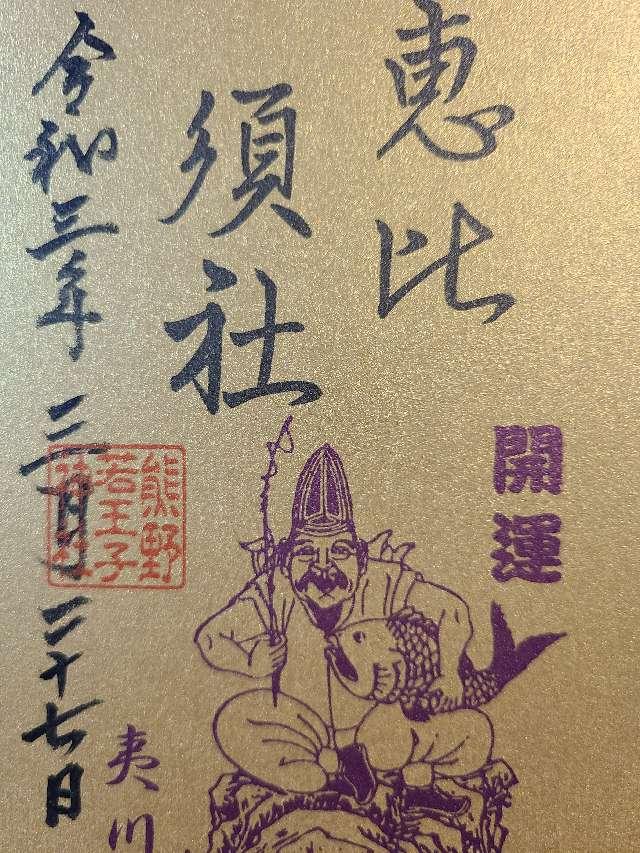 恵比
須社
開運
令和三年二月二十七日
熊野
若王子
神社
夷川